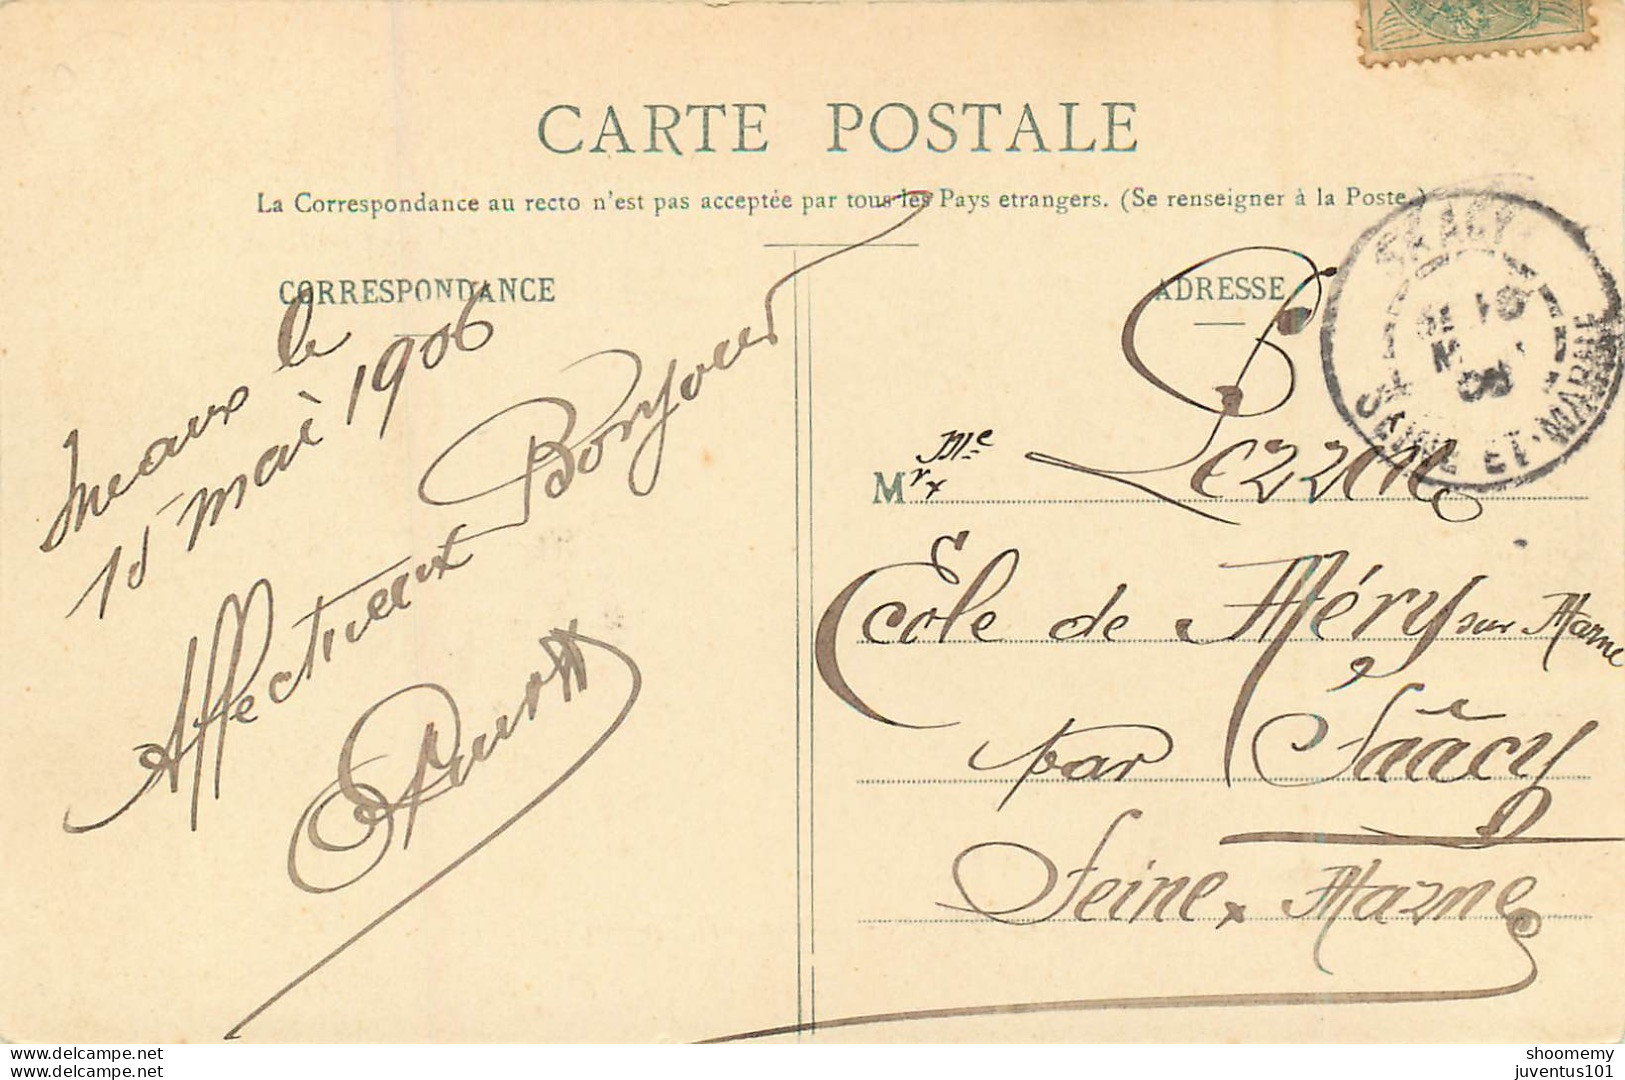 CARTE POSTALE
La Correspondance au recto n'est pas acceptée par tous les Pays etrangers. (Se renseigner à la Poste.)
CORRESPONDANCE
Meaux le
15 mai 1906
Affectueux Bonjour
ADRESSE
Mr x Me Lezzen
École de Méry sur Marne
par Sâacy
Seine x Marne
SAACY
SEINE-ET-MARNE
www.delcampe.net
www.delcampe.net
shoomemy
juventus101